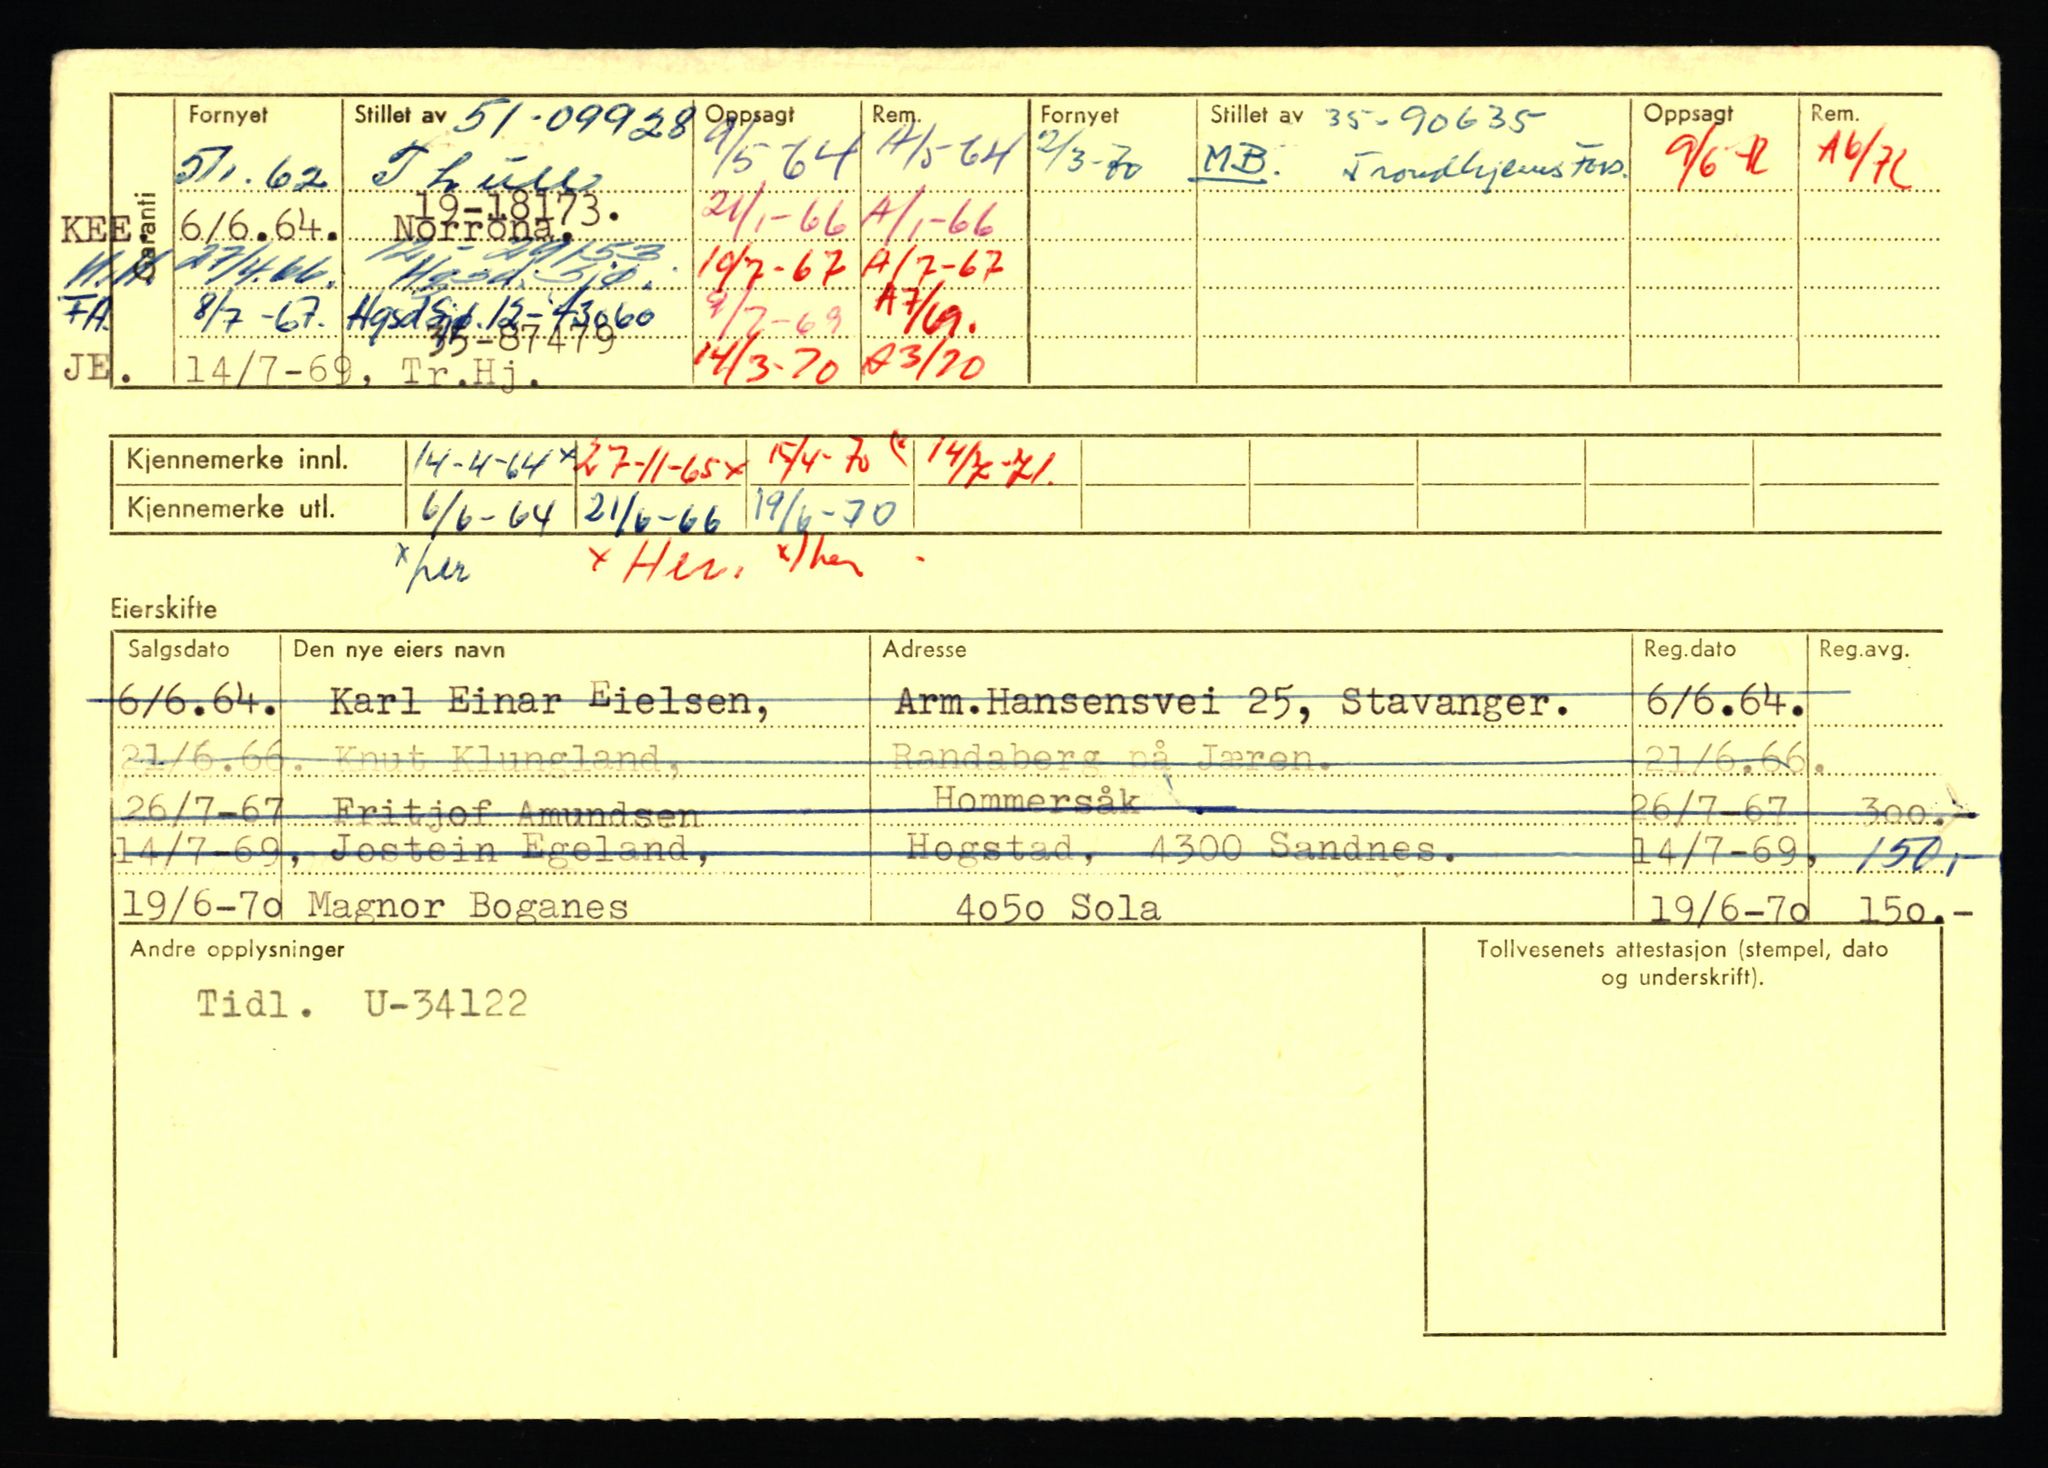 Garanti
Fornyet Stillet av 51-09928 Oppsagt Rem. Fornyet Stillet av 35-90635 Oppsagt Rem.
5/1.62 9/5-64 A/5-64 2/3-70 M.B. Trondhjems Fors. 9/6-72 A6/72
19-18173.
KEE. 6/6.64. Norrøna. 21/1-66 A/1-66
12-29153
27/4.66. Hgsd. Sjø. 19/7-67 A/7-67
FA. 8/7-67. Hgsd Sjø. 12-43060 9/7-69 A7/69.
35-87479
JE. 14/7-69, Tr.Hj. 14/3-70 A3/70
Kjennemerke innl. 14-4-64 x 27-11-65 x 15/4-70 14/7-71.
Kjennemerke utl. 6/6-64 21/6-66 19/6-70
x her x Her. x her
Eierskifte
Salgsdato Den nye eiers navn Adresse Reg.dato Reg.avg.
6/6.64. Karl Einar Eielsen, Arm.Hansensvei 25, Stavanger. 6/6.64.
21/6.66. Knut Klungland, Randaberg på Jæren. 21/6.66.
26/7-67 Fritjof Amundsen Hommersåk 26/7-67 300.-
14/7-69, Jostein Egeland, Hogstad, 4300 Sandnes. 14/7-69, 150,-
19/6-70 Magnor Boganes 4050 Sola 19/6-70 150.-
Andre opplysninger
Tollvesenets attestasjon (stempel, dato
og underskrift).
Tidl. U-34122